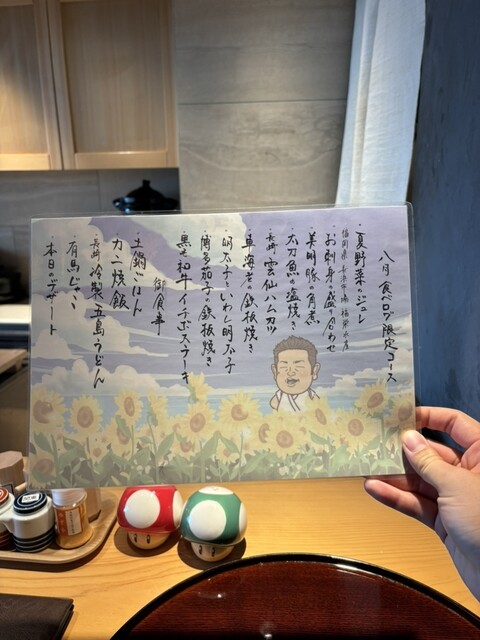 八月 食べログ限定コース
・夏野菜のジュレ
福岡県 長浜市場
・お刺身盛り合わせ
・美明豚の角煮
・太刀魚の塩焼き
・長崎 雲仙ハムカツ
・車海老の鉄板焼き
・明太子といわし明太子
・博多茄子の鉄板焼き
・黒毛和牛イチボステーキ
御食事
・土鍋ごはん
・カニ焼飯
・長崎 冷製五島うどん
・有馬
・本日のデザート